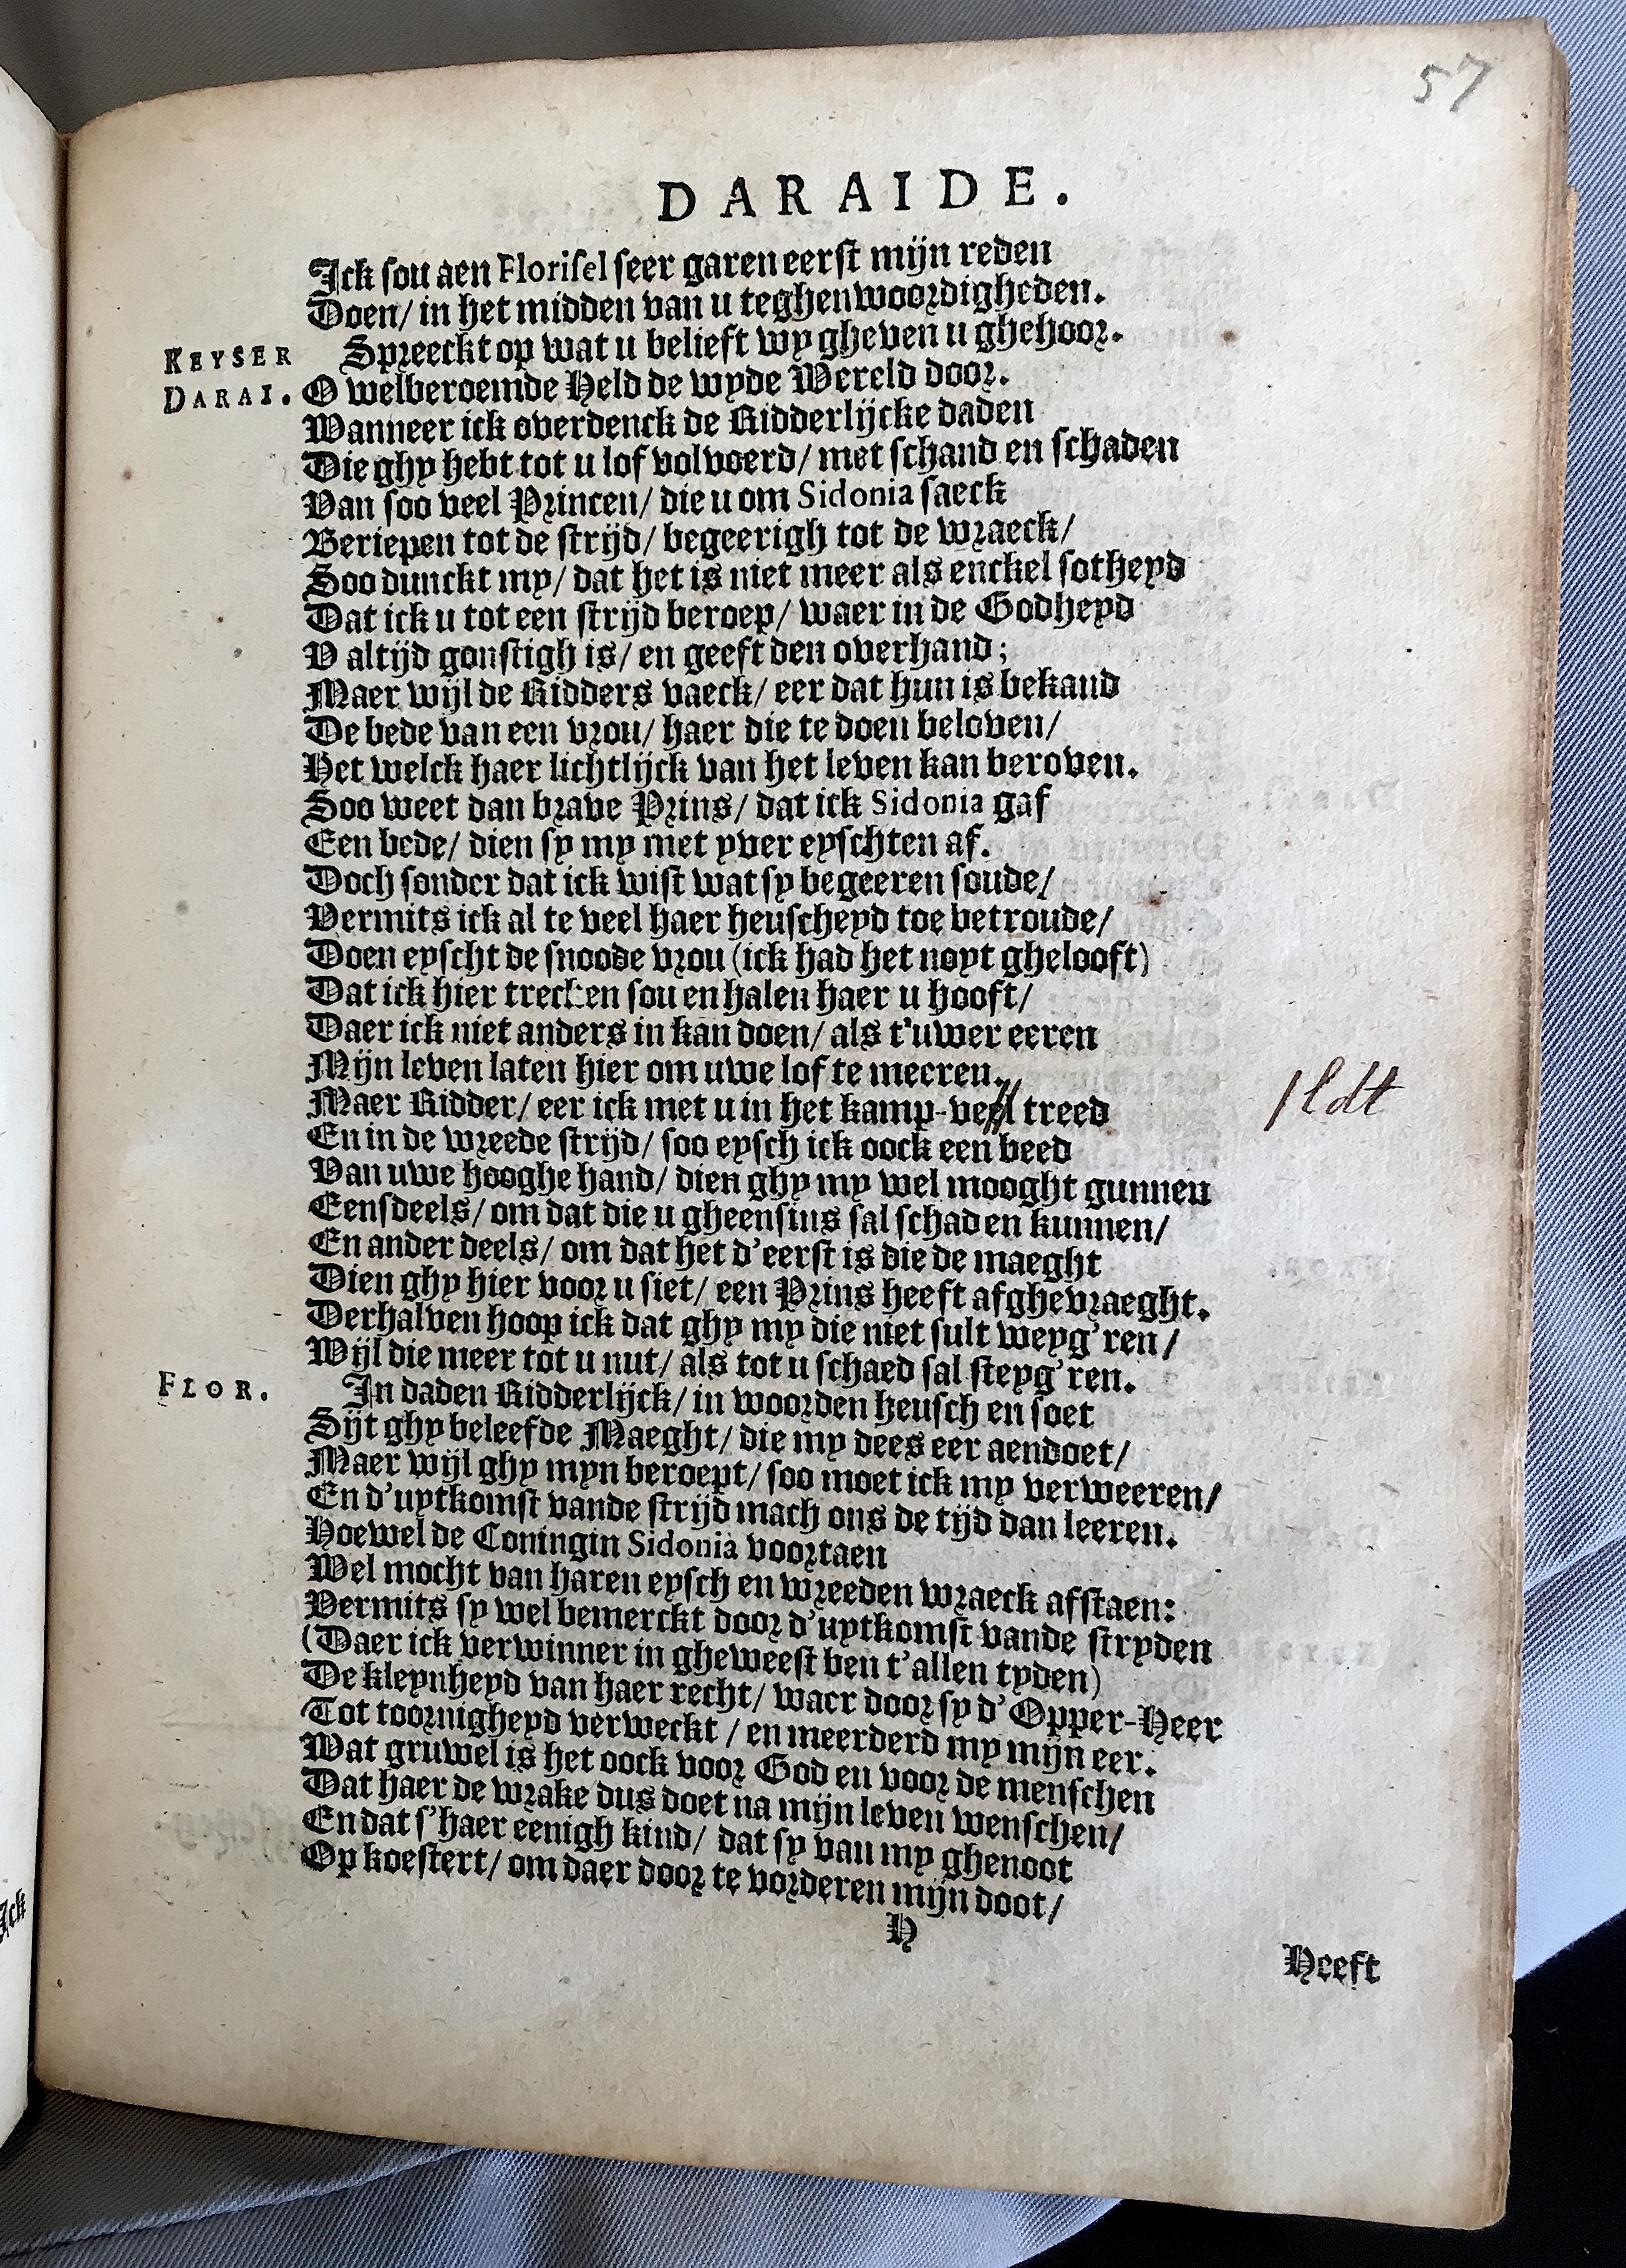 57
DARAIDE.
Ick sou aen Florisel seer garen eerst mijn reden
Doen/ in het midden van u teghenwoordigheden.
KEYSER Spreeckt op wat u belieft wy gheven u ghehoor.
DARAI. O welberoemde Held de wyde Wereld door.
Wanneer ick overdenck de Ridderlijcke daden
Die ghy hebt tot u lof volvoerd/ met schand en schaden
Van soo veel Princen/ die u om Sidonia saeck
Beriepen tot de strijd/ begeerigh tot de wraeck/
Soo dunckt my/ dat het is niet meer als enckel sotheyd
Dat ick u tot een strijd beroep/ waer in de Godheyd
V altijd gonstigh is/ en geeft den overhand;
Maer wijl de Ridders vaeck/ eer dat hun is bekand
De bede van een vrou/ haer die te doen beloven/
Het welck haer lichtlijck van het leven kan beroven.
Soo weet dan brave Prins/ dat ick Sidonia gaf
Een bede/ dien sy my met yver eyschten af.
Doch sonder dat ick wist wat sy begeeren soude/
Vermits ick al te veel haer heuscheyd toe betroude/
Doen eyscht de snoode vrou (ick had het noyt ghelooft)
Dat ick hier trecken sou en halen haer u hooft/
Daer ick niet anders in kan doen/ als t'uwer eeren
Mijn leven laten hier om uwe lof te meeren.
Maer Ridder/ eer ick met u in het kamp-veel treed ldt
En in de wreede strijd/ soo eysch ick oock een beed
Van uwe hooghe hand/ dien ghy my wel mooght gunnen
Eensdeels/ om dat die u gheensins sal schaden kunnen/
En ander deels/ om dat het d'eerst is die de maeght
Dien ghy hier voor u siet/ een Prins heeft afghevraeght.
Derhalven hoop ick dat ghy my die niet sult weyg'ren/
Wijl die meer tot u nut/ als tot u schaed sal steyg'ren.
FLOR. In daden Ridderlijck/ in woorden heusch en soet
Sijt ghy beleefde Maeght/ die my dees eer aendoet/
Maer wijl ghy myn beroept/ soo moet ick my verweeren/
En d'uytkomst vande strijd mach ons de tijd dan leeren.
Hoewel de Coningin Sidonia voortaen
Wel mocht van haren eysch en wreeden wraeck afstaen:
Vermits sy wel bemerckt door d'uytkomst vande stryden
(Daer ick verwinner in gheweest ben t'allen tyden)
De kleynheyd van haer recht/ waer door sy d'Opper-Heer
Tot toornigheyd verweckt / en meerderd my mijn eer.
Wat gruwel is het oock voor God en voor de menschen
Dat haer de wrake dus doet na mijn leven wenschen/
En dat s'haer eenigh kind/ dat sy van my ghenoot
Op koestert/ om daer door te vorderen mijn doot/
H
Heeft
Ick